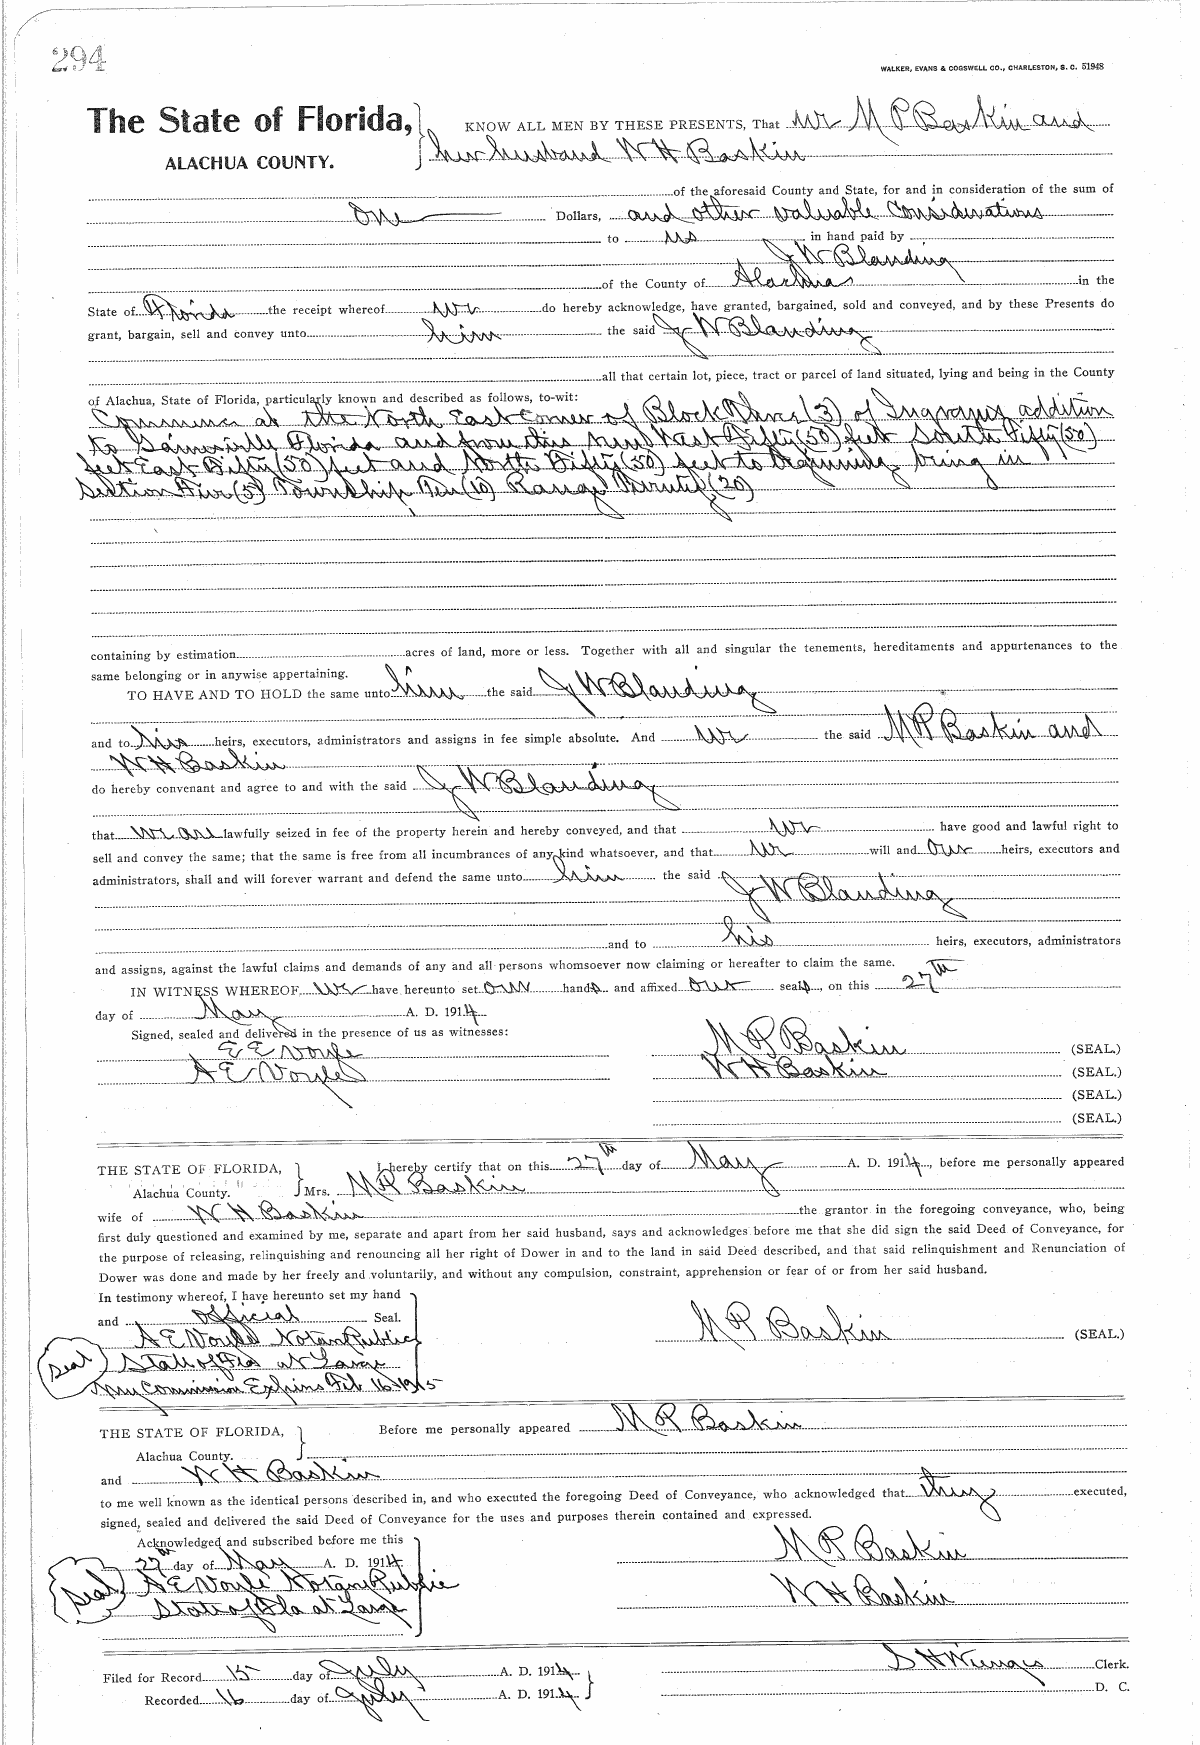 294
WALKER, EVANS & COGSWELL CO., CHARLESTON, S. C. 51948
The State of Florida, KNOW ALL MEN BY THESE PRESENTS, That we M P Baskin and
ALACHUA COUNTY. her husband W H Baskin
of the aforesaid County and State, for and in consideration of the sum of
One Dollars, and other valuable Considerations
to us in hand paid by
J W Blanding
of the County of Alachua in the
State of Florida the receipt whereof we do hereby acknowledge, have granted, bargained, sold and conveyed, and by these Presents do
grant, bargain, sell and convey unto him the said J W Blanding
all that certain lot, piece, tract or parcel of land situated, lying and being in the County
of Alachua, State of Florida, particularly known and described as follows, to-wit:
Commence at the North East Corner of Block Three (3) of Ingrams addition
to Gainesville Florida and from this run West Fifty (50) feet South Fifty (50)
feet East Fifty (50) feet and North Fifty (50) feet to beginning being in
Section Five (5) Township Ten (10) Range Twenty (20)
containing by estimation acres of land, more or less. Together with all and singular the tenements, hereditaments and appurtenances to the
same belonging or in anywise appertaining.
TO HAVE AND TO HOLD the same unto him the said J W Blanding
and to his heirs, executors, administrators and assigns in fee simple absolute. And we the said M P Baskin and
W H Baskin
do hereby convenant and agree to and with the said J W Blanding
that we are lawfully seized in fee of the property herein and hereby conveyed, and that we have good and lawful right to
sell and convey the same; that the same is free from all incumbrances of any kind whatsoever, and that we will and our heirs, executors and
administrators, shall and will forever warrant and defend the same unto him the said
J W Blanding
and to his heirs, executors, administrators
and assigns, against the lawful claims and demands of any and all persons whomsoever now claiming or hereafter to claim the same.
IN WITNESS WHEREOF we have hereunto set our hands and affixed our seals, on this 27th
day of May A. D. 1914
Signed, sealed and delivered in the presence of us as witnesses:
E E Voyle M P Baskin (SEAL.)
A E Voyle W H Baskin (SEAL.)
(SEAL.)
(SEAL.)
THE STATE OF FLORIDA, I hereby certify that on this 27th day of May A. D. 1914, before me personally appeared
Alachua County. Mrs. M P Baskin
wife of W H Baskin the grantor in the foregoing conveyance, who, being
first duly questioned and examined by me, separate and apart from her said husband, says and acknowledges before me that she did sign the said Deed of Conveyance, for
the purpose of releasing, relinquishing and renouncing all her right of Dower in and to the land in said Deed described, and that said relinquishment and Renunciation of
Dower was done and made by her freely and voluntarily, and without any compulsion, constraint, apprehension or fear of or from her said husband.
In testimony whereof, I have hereunto set my hand
and official Seal.
A E Voyle Notary Public M P Baskin (SEAL.)
Seal State of Fla at Large
My Commission Expires Feb 16 1915
THE STATE OF FLORIDA, Before me personally appeared M P Baskin
Alachua County.
and W H Baskin
to me well known as the identical persons described in, and who executed the foregoing Deed of Conveyance, who acknowledged that they executed,
signed, sealed and delivered the said Deed of Conveyance for the uses and purposes therein contained and expressed.
Acknowledged and subscribed before me this M P Baskin
27th day of May A. D. 1914
Seal A E Voyle Notary Public W H Baskin
State of Fla at Large
Filed for Record 15 day of July A. D. 1914 S H Wienges Clerk.
Recorded 16 day of July A. D. 1914 D. C.